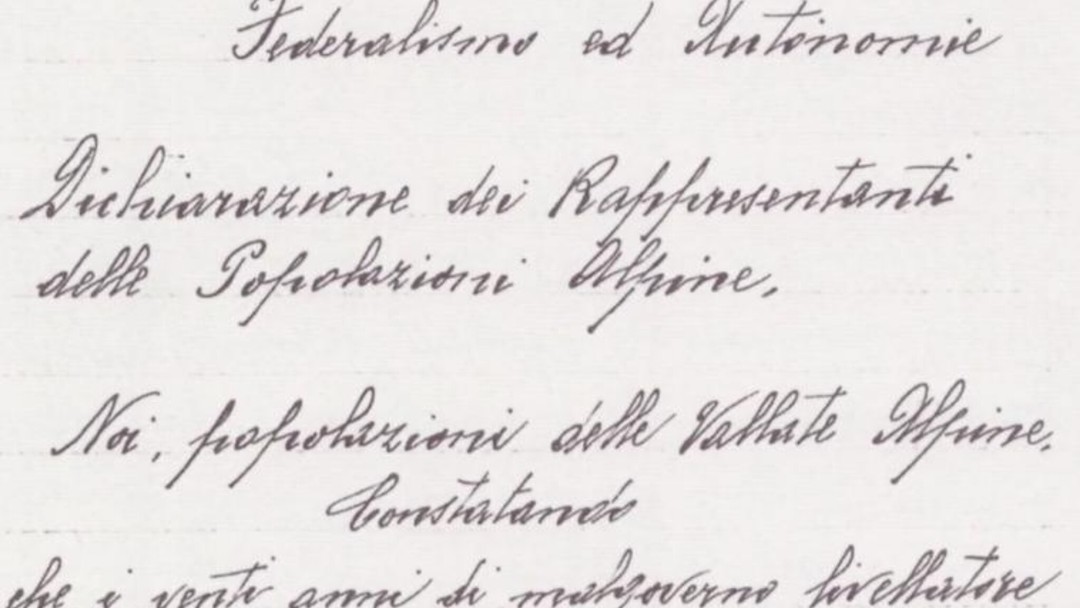 Federalismo ed Autonomie
Dichiarazione dei Rappresentanti
delle Popolazioni Alpine,
Noi, popolazioni delle Vallate Alpine.
Constatando
che i venti anni di malgoverno livellatore